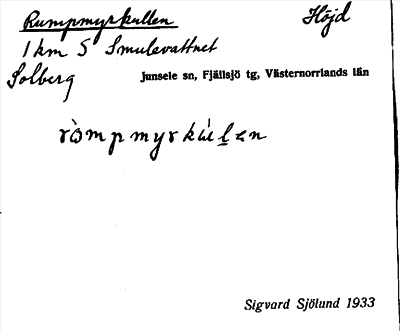 Rumpmyrkullen Höjd
1 km S Smulevattnet
Solberg
Junsele sn, Fjällsjö tg, Västernorrlands län
ròmpmyrkúḷen
Sigvard Sjölund 1933